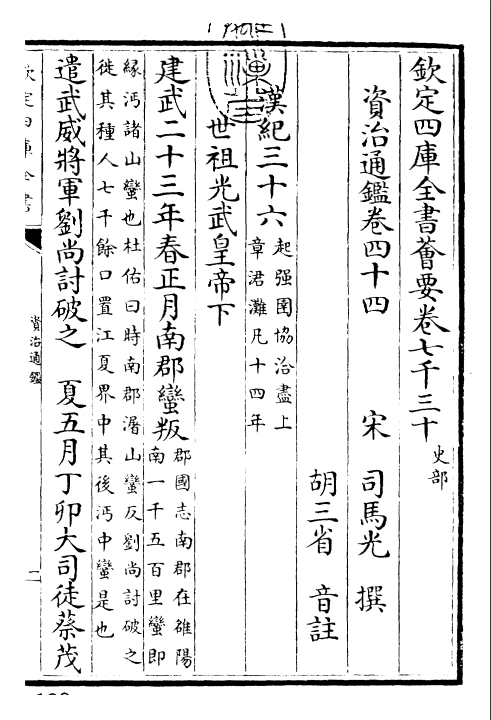 欽定四庫全書薈要卷七千三十 史部
資治通鑑卷四十四 宋 司馬光 撰
胡三省 音註
漢紀三十六 起强圉協洽盡上
章君灘凡十四年
世祖光武皇帝下
建武二十三年春正月南郡蠻叛 郡國志南郡在雒陽
南一千五百里蠻即
緣沔諸山蠻也杜佑曰時南郡潳山蠻反劉尚討破之
徙其種人七千餘口置江夏界中其後沔中蠻是也
遣武威將軍劉尚討破之 夏五月丁卯大司徒蔡茂
欽定四庫全書
資治通鑑